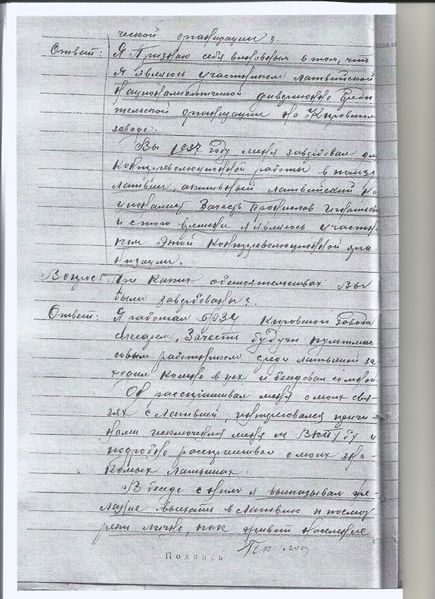 ческой организации?
Ответ: Я признаю себя виновным в том, что
я являюсь участником латвийской
националистической диверсионно вреди
тельской организации на Кировском
заводе.
Вы 1937 году меня завербовал для
контрреволюционной работы в пользу
Латвии, активный латвийский на
ционалист Зачест Бронислав
и с того времени я являюсь участ
ком этой контрреволюционной орга
низации.
Вопрос: При каких обстоятельствах Вы
были завербованы?
Ответ: Я работал Кировского завода
слесарем, Зачест будучи
совым работником среди латышей за
ходил ко мне в цех и беседовал со мной
Он расспрашивал меня о моих свя
зях с Латвией интересовался причи
нами исключения меня из ВКП/б/ и
подробно расспрашивал о моих зна
комых латышах.
В беседе с ним я высказывал же
лание выехать в Латвию и посмот
реть лично, как живет население
Подпись